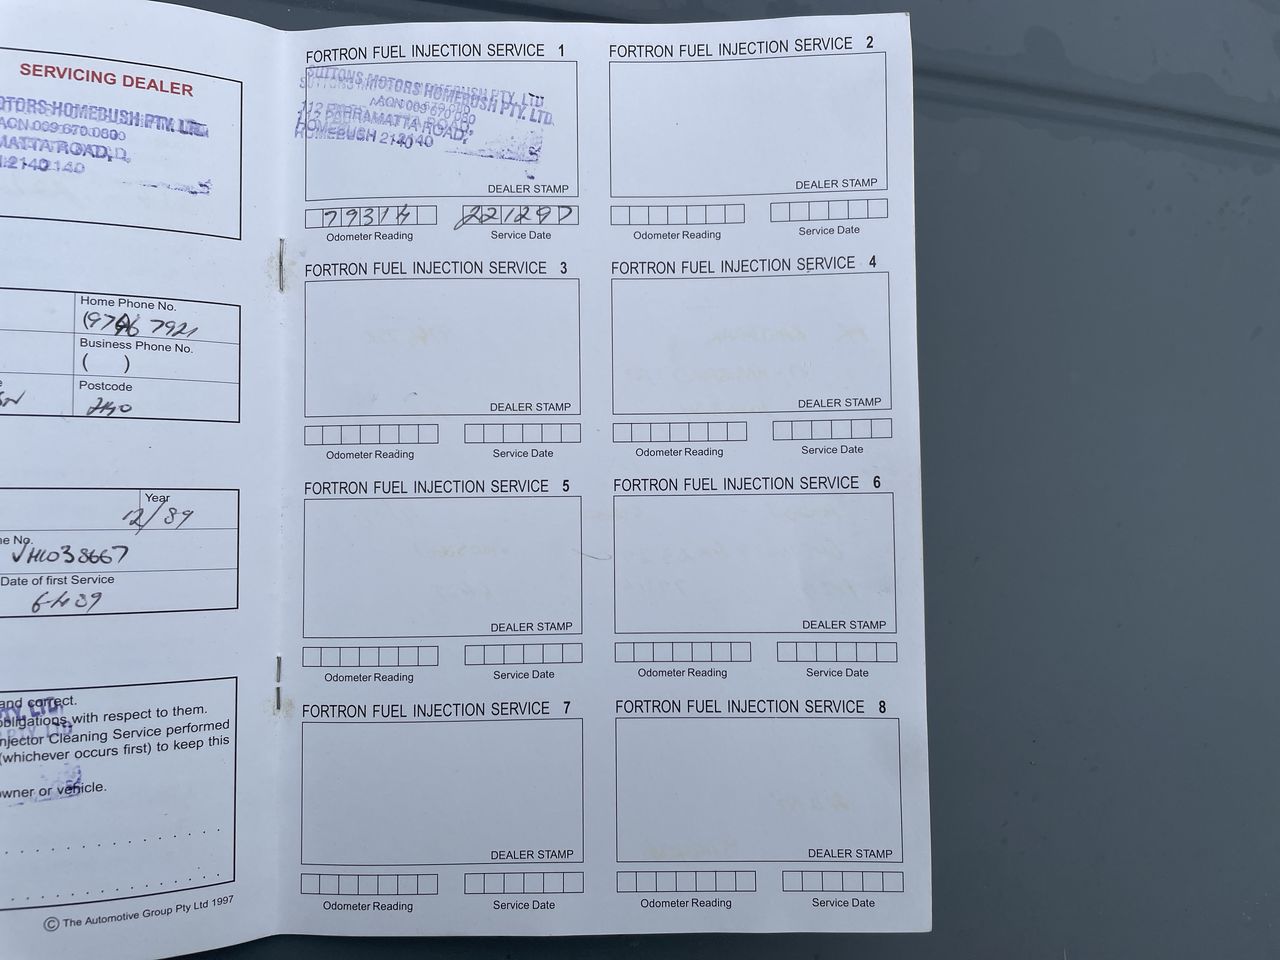 SERVICING DEALER
OTORS HOMEBUSH PTY. LTD.
ACN 009 670 080
MATTA ROAD,
2140
Home Phone No.
7921
Business Phone No.
( )
Postcode
Year
12/89
e No.
JH1038667
Date of first Service
and correct.
PTY. LTD.
obligations with respect to them.
njector Cleaning Service performed
(whichever occurs first) to keep this
owner or vehicle.
© The Automotive Group Pty Ltd 1997
FORTRON FUEL INJECTION SERVICE 1
SUTTONS MOTORS HOMEBUSH PTY. LTD.
ACN 009 670 080
112 PARRAMATTA ROAD,
HOMEBUSH 2140
DEALER STAMP
79314 221297
Odometer Reading Service Date
FORTRON FUEL INJECTION SERVICE 2
DEALER STAMP
Odometer Reading Service Date
FORTRON FUEL INJECTION SERVICE 3
DEALER STAMP
Odometer Reading Service Date
FORTRON FUEL INJECTION SERVICE 4
DEALER STAMP
Odometer Reading Service Date
FORTRON FUEL INJECTION SERVICE 5
DEALER STAMP
Odometer Reading Service Date
FORTRON FUEL INJECTION SERVICE 6
DEALER STAMP
Odometer Reading Service Date
FORTRON FUEL INJECTION SERVICE 7
DEALER STAMP
Odometer Reading Service Date
FORTRON FUEL INJECTION SERVICE 8
DEALER STAMP
Odometer Reading Service Date